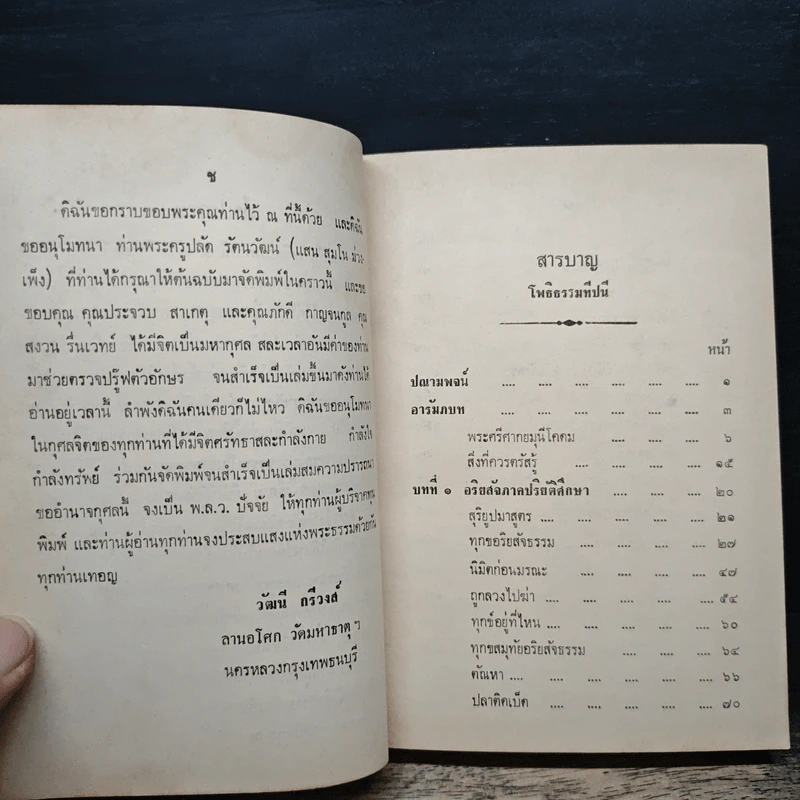 ช
ดิฉันขอกราบขอบพระคุณท่านไว้ ณ ที่นี้ด้วย และดิฉัน
ขออนุโมทนา ท่านพระครูปลัด รัตนวัฒน์ (แสน สุมโน ม่วง-
เพ็ง) ที่ท่านได้กรุณาให้ต้นฉบับมาจัดพิมพ์ในคราวนี้ และขอ
ขอบคุณ คุณประจวบ สาเกตุ และคุณภักดี กาญจนกูล คุณ
สงวน รื่นเวทย์ ได้มีจิตเป็นมหากุศล สละเวลาอันมีค่าของท่าน
มาช่วยตรวจปรู๊ฟตัวอักษร จนสำเร็จเป็นเล่มขึ้นมาดังท่านได้
อ่านอยู่เวลานี้ ลำพังดิฉันคนเดียวก็ไม่ไหว ดิฉันขออนุโมทนา
ในกุศลจิตของทุกท่านที่ได้มีจิตศรัทธาสละกำลังกาย กำลังใจ
กำลังทรัพย์ ร่วมกันจัดพิมพ์จนสำเร็จเป็นเล่มสมความปรารถนา
ขออำนาจกุศลนี้ จงเป็น พ.ล.ว. ปัจจัย ให้ทุกท่านผู้บริจาคทุน
พิมพ์ และท่านผู้อ่านทุกท่านจงประสบแสงแห่งพระธรรมด้วยกัน
ทุกท่านเทอญ
วัฒนี กรีวงส์
ลานอโศก วัดมหาธาตุ ฯ
นครหลวงกรุงเทพธนบุรี
สารบาญ
โพธิธรรมทีปนี
หน้า
ปณามพจน์ .... .... .... .... .... ๑
อารัมภบท .... .... .... .... .... ๓
พระศรีศากยมุนีโคดม .... .... .... ๖
สิ่งที่ควรตรัสรู้ .... .... .... .... ๑๕
บทที่ ๑ อริยสัจภาคปริยัติศึกษา .... .... .... ๒๐
สุริยูปมาสูตร .... .... .... .... .... ๒๑
ทุกขอริยสัจธรรม .... .... .... .... ๒๗
นิมิตก่อนมรณะ .... .... .... .... ๔๗
ถูกลวงไปฆ่า .... .... .... .... .... ๕๔
ทุกข์อยู่ที่ไหน .... .... .... .... .... ๖๐
ทุกขสมุทัยอริยสัจธรรม .... .... .... ๖๔
ตัณหา .... .... .... .... .... ๖๖
ปลาติดเบ็ด .... .... .... .... .... ๗๐